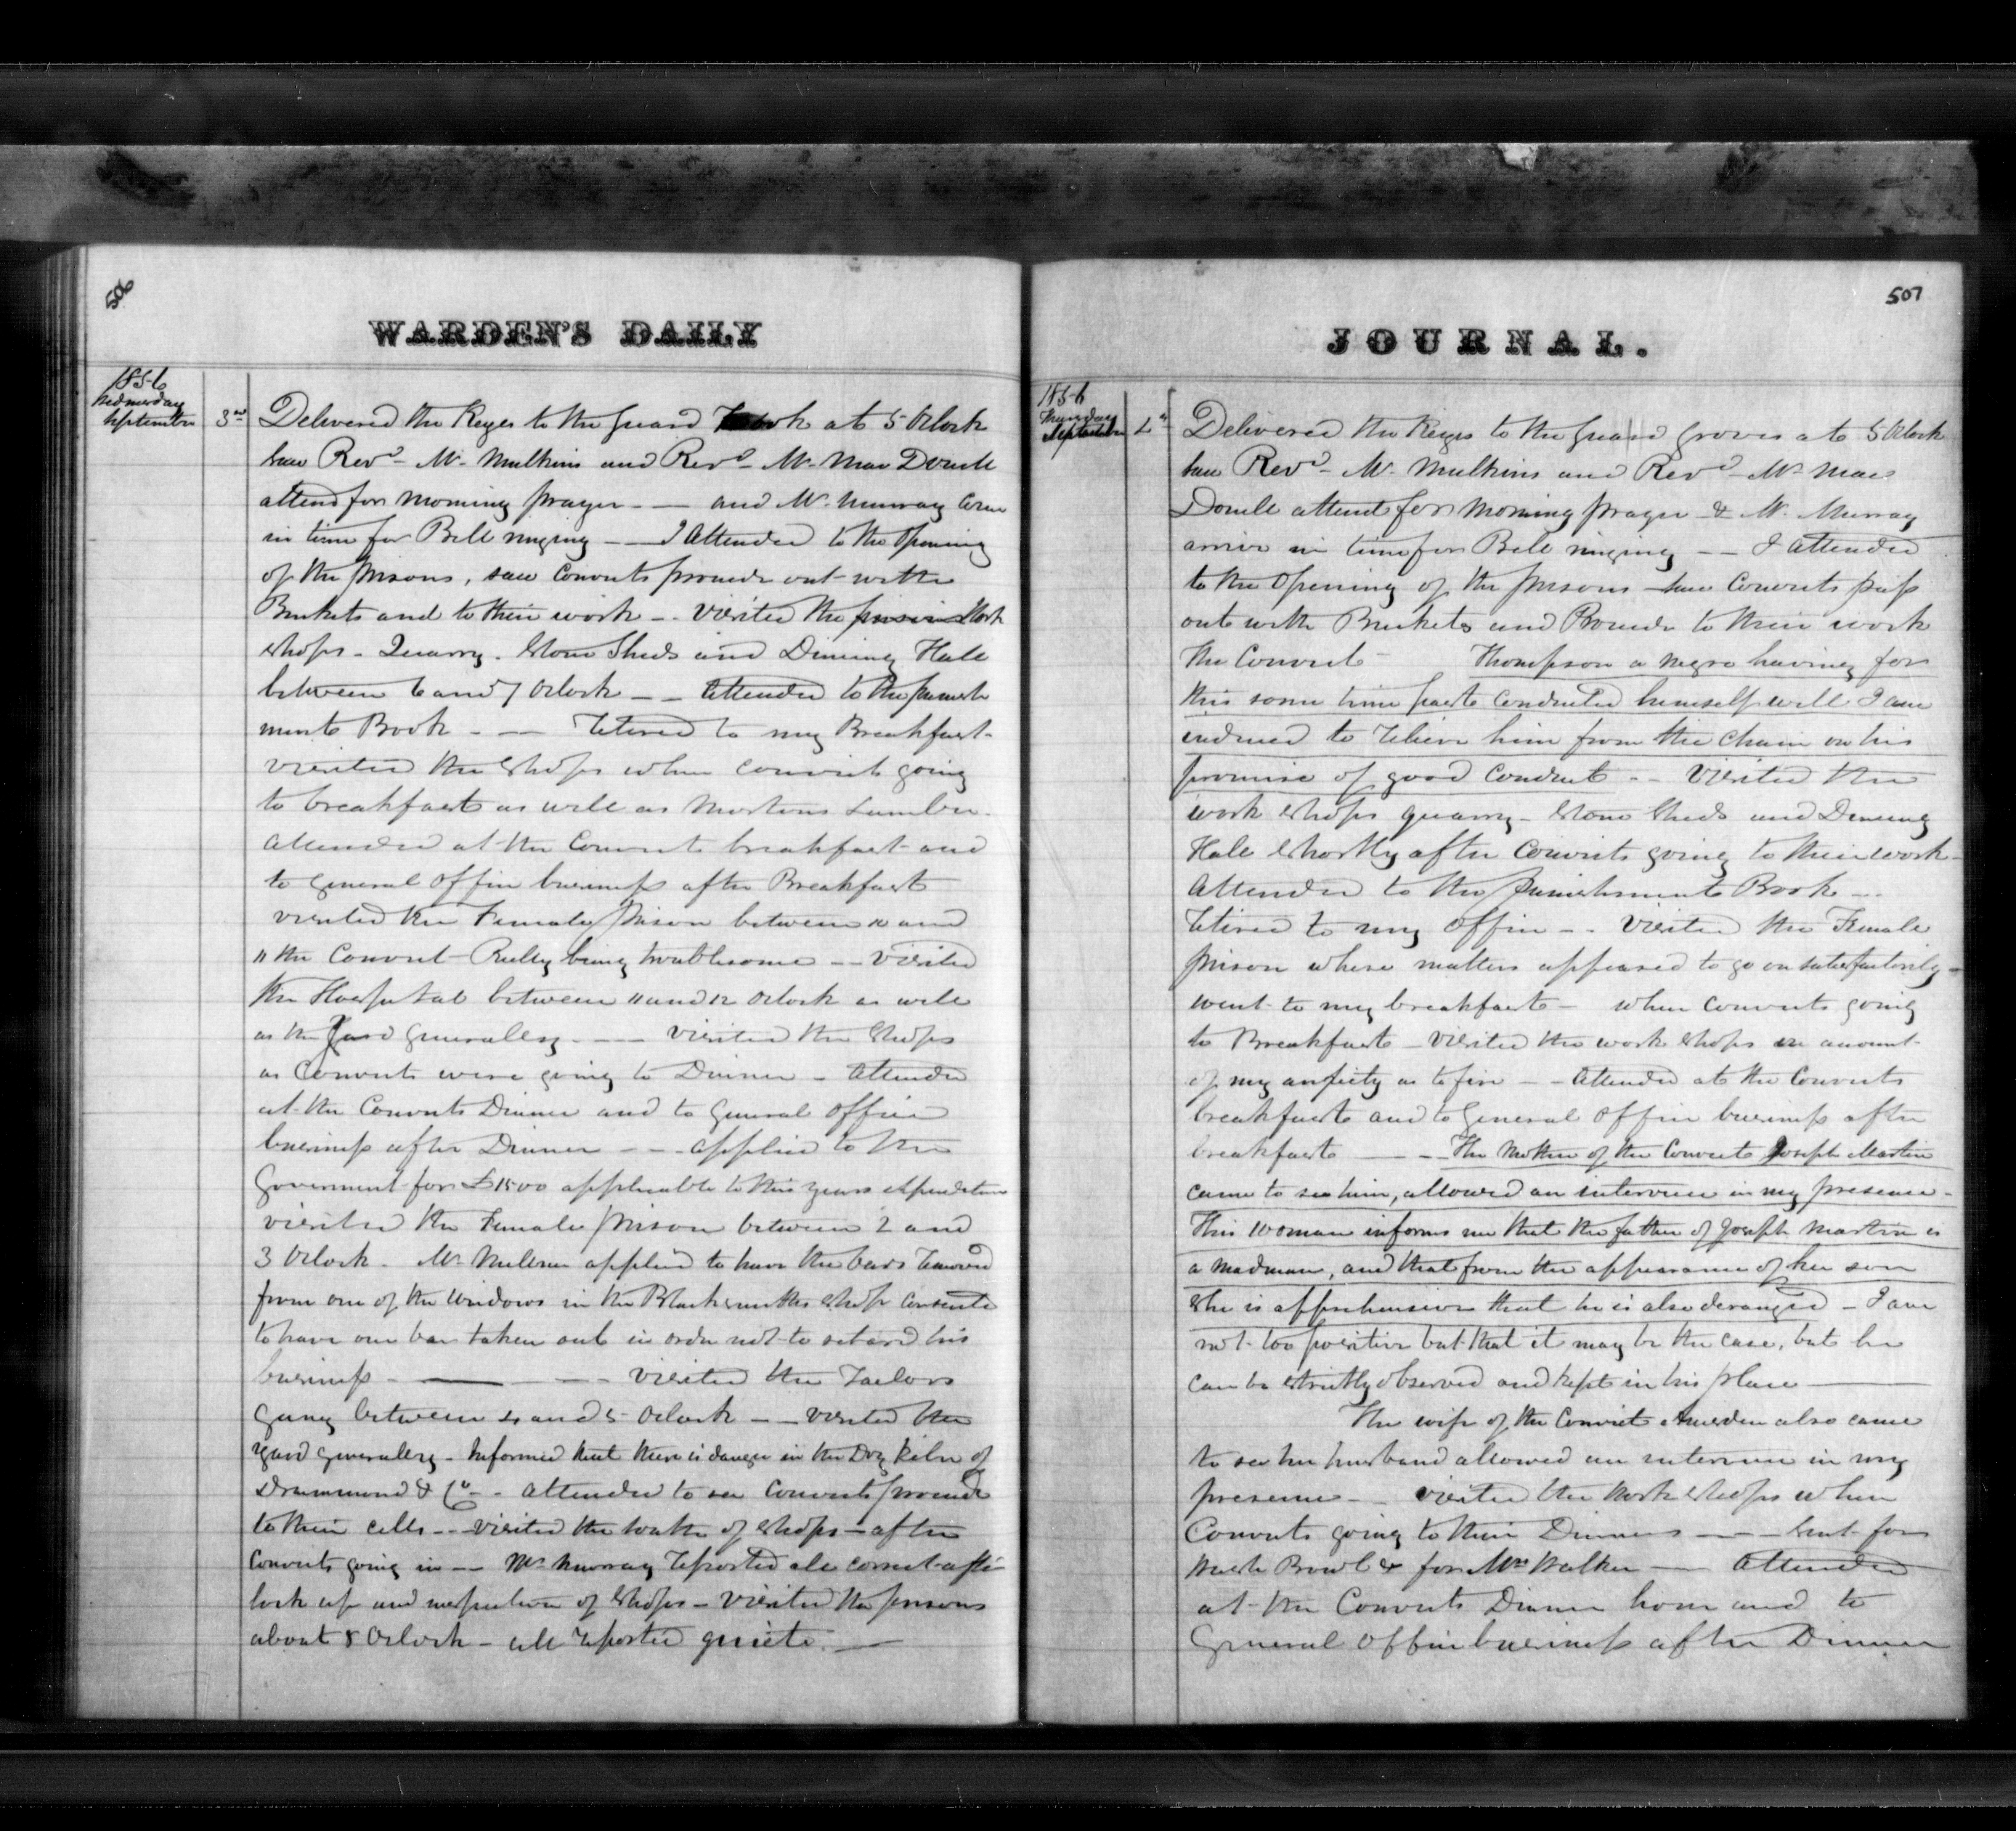 506
WARDEN'S DAILY
1856
Wednesday
September 3rd
Delivered the Keyes to the Guard at 5 Oclock
saw Revd Mr Mulkins and Revd Mr Mac Donell
attend for morning prayer - — and Mr Murray come
in time for Bell ringing — I Attended to the Opening
of the prisons, saw Convicts proceede out with
Buckets and to their work — visited the Work
Shops - Quarry - Stone Sheds and Dineing Hall
between 6 and 7 Oclock — Attended to the punish
ment Book - — Retired to my Breakfast -
visited the Shops when convicts going
to breakfast as well as Mortons Lumber -
Attended at the Convicts breakfast and
to General Office business after Breakfast
visited the Female Prison between 10 and
11 the Convict Reily being troublesome — visited
the Hospital between 11 and 12 Oclock as well
as the Yard Generally - — visited the Shops
as Convicts were going to Dinner - Attended
at the Convicts Dinner and to General Office
business after Dinner - - - applied to the
Goverment for £1500 applicable to this years expenditure
visited the Female prison between 2 and
3 Oclock - Mr applied to have the bars removed
from one of the windows in the Blacksmiths Shop consented
to have one bar taken out in order not to retard his
business - — - visited the Tailors
Gang between 4 and 5 Oclock — visited the
yard generally - Informed that there is danger in the Dry Kiln of
Drummond & Co - - attended to see Convicts proceede
to their cells - - visited the of Shops - after
Convicts going in — Mr Murray reported all correct after
lock up and inspection of Shops - visited the prisons
about 8 Oclock - all reported quiete. —
507
JOURNAL.
1856
Thursday
September 4th
Delivered the Keyes to the Guard Groves at 5 Oclock
saw Revd Mr Mulkins and Revd Mr Mac
Donell attend for morning prayer & Mr Murray
arrive in time for Bell ringing — I attended
to the Opening of the prisons - saw Convicts pass
out with Buckets and Proceede to their work
The Convict - Thompson a negro having for
this some time past conducted himself well I am
induced to relieve him from the chain on his
promise of good Conduct - - Visited the
work Shops quarry - Stone Sheds and Dineing
Hall Shortly after Convicts going to their work -
Attended to the punishment Book -
retired to my office - - Visited the Female
prison where matters appeared to go on satisfactorily -
went to my breakfast - when convicts going
to Breakfast - visited the work shops on account
of my anxiety as to fire - - Attended at the Convicts
breakfast and to General Office business after
breakfast — - The Mother of the Convict Joseph Martin
came to see him, allowed an interview in my presence -
This woman informs me that the father of Joseph Martin is
a madman, and that from the appearance of her son
She is apprehensive that he is also deranged - I am
not too positive but that it may be the case, but he
can be strictly observed and kept in his place —
The wife of the Convict also came
to see her husband allowed an interview in my
presence - - visited the Work Shops when
Convicts going to their Dinners - — Sent for
& for Mrs Walker — Attended
at the Convicts Dinner hour and to
General Office business after Dinner